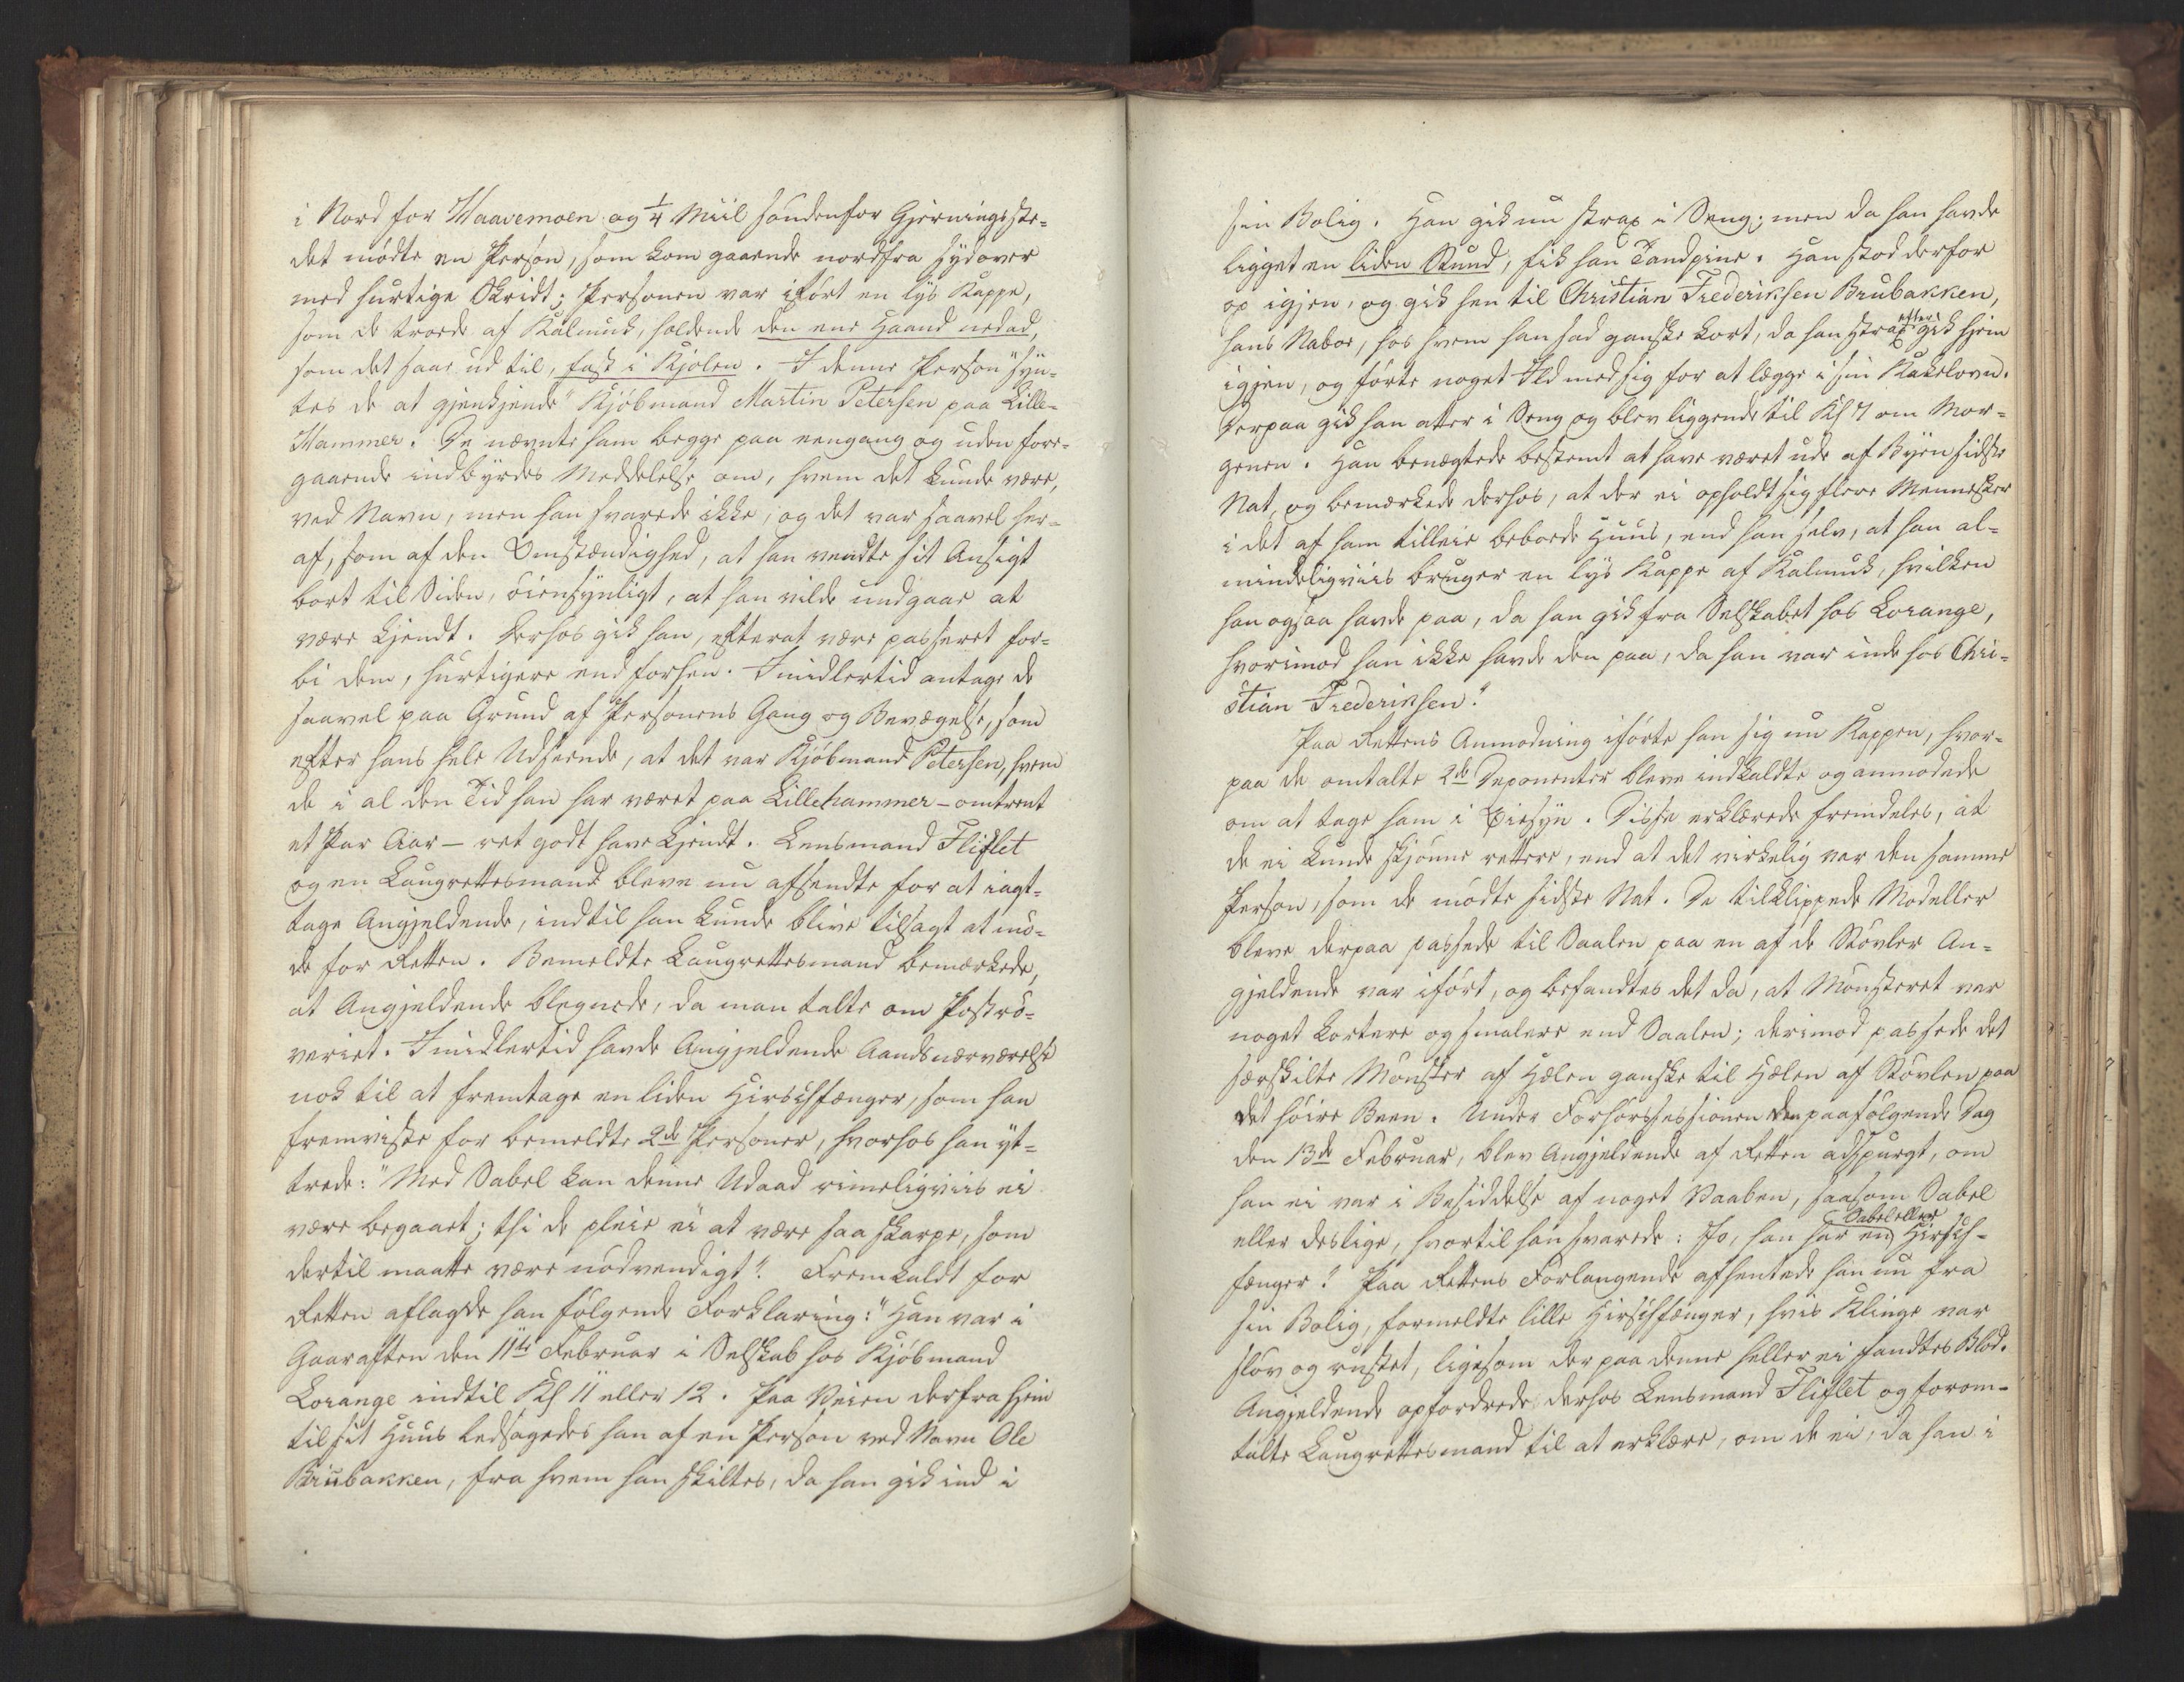 i Nord for Haavemoen og 1/4 Miil søndenfor Gjerningsste-
det mødte en Person, som kom gaaende nordfra sydover
med hurtige Skridt; Personen var iført en lys Kappe,
som de troede af Kalmuk, holdende den ene Haand nedad,
som det saae ud til, fast i Kjolen. I denne Person "syn-
tes de at gjenkjende" Kjøbmand Martin Petersen paa Lille-
Hammer. De nævnte ham begge paa eengang og uden fore-
gaaende indbyrdes Meddelelse om, hvem det kunde være,
ved Navn, men han svarede ikke, og det var saavel her-
af, som af den Omstændighed, at han vendte sit Ansigt
bort til Siden, øiensynligt, at han vilde undgaae at
være kjendt. Derhos gik han, efterat være passeret for-
bi dem, hurtigere end forhen. Imidlertid antage de
saavel paa Grund af Personens Gang og Bevægelse, som
efter hans hele Udseende, at det var Kjøbmand Petersen, hvem
de i al den Tid han har været paa Lillehammer – omtrent
et Par Aar – ret godt have kjendt. Lensmand Fliflet
og en Laugrettesmand bleve nu afsendte for at iagt-
tage Angjeldende, indtil han kunde blive tilsagt at mø-
de for Retten. Bemeldte Laugrettesmand bemærkede,
at Angjeldende blegnede, da man talte om Postrø-
veriet. Imidlertid havde Angjeldende Aandsnærværelse
nok til at fremtage en liden Hirschfænger, som han
fremviste for bemeldte 2de Personer, hvorhos han yt-
trede: "Med Sabel kan denne Udaad rimeligviis ei
være begaaet; thi de pleie ei at være saa skarpe, som
dertil maatte være nødvendigt". Fremkaldt for
Retten aflagde han følgende Forklaring: "Han var i
Gaaraften den 11te Februar i Selskab hos Kjøbmand
Lorange indtil Kl 11 eller 12. Paa Veien derfra hjem
til sit Huus ledsagedes han af en Person ved Navn Ole
Brubakken, fra hvem han skiltes, da han gik ind i
sin Bolig. Han gik nu strax i Seng; men da han havde
ligget en liden Stund, fik han Tandpine. Han stod derfor
op igjen, og gik hen til Christian Frederiksen Brubakken,
hans Naboe, hos hvem han sad ganske kort, da han strax efter gik hjem
igjen, og førte noget Ild med sig for at lægge i sin Kakelovn.
Derpaa gik han atter i Seng og blev liggende til Kl 7 om Mor-
genen. Han benægtede bestemt at have været ude af Byen sidste
Nat, og bemærkede derhos, at der ei opholdt sig flere Mennesker
i det af ham tilleie beboede Huus, end han selv, at han al-
mindeligviis bruger en lys Kappe af Kalmuk, hvilken
han ogsaa havde paa, da han gik fra Selskabet hos Lorange,
hvorimod han ikke havde den paa, da han var inde hos Chri-
stian Frederiksen".
Paa Rettens Anmodning iførte han sig nu Kappen, hvor-
paa de omtalte 2de Deponenter bleve indkaldte og anmodede
om at tage ham i Øiesyn. Disse erklærede fremdeles, at
de ei kunde skjønne rettere, end at det virkelig var den samme
Person, som de mødte sidste Nat. De tilklippede Modeller
bleve derpaa passede til Saalen paa en af de Støvler An-
gjeldende var iført, og befandtes det da, at Mønsteret var
noget kortere og smalere end Saalen; derimod passede det
særskilte Mønster af Hælen ganske til Hælen af Støvlen paa
det høire Been. Under Forhørssessionen den paafølgende Dag
den 13de Februar, blev Angjeldende af Retten adspurgt, om
han ei var i Besiddelse af noget Vaaben, saasom Sabel
eller deslige, hvortil han svarede: "Jo, han har en Sabel eller Hirsch-
fænger". Paa Rettens Forlangende afhentede han nu fra
sin Bolig, formeldte lille Hirschfænger, hvis Klinge var
sløv og rustet, ligesom der paa denne heller ei fandtes Blod.
Angjeldende opfordrede derhos Lensmand Fliflet og forom-
talte Laugrettesmand til at erklære, om de ei, da han i